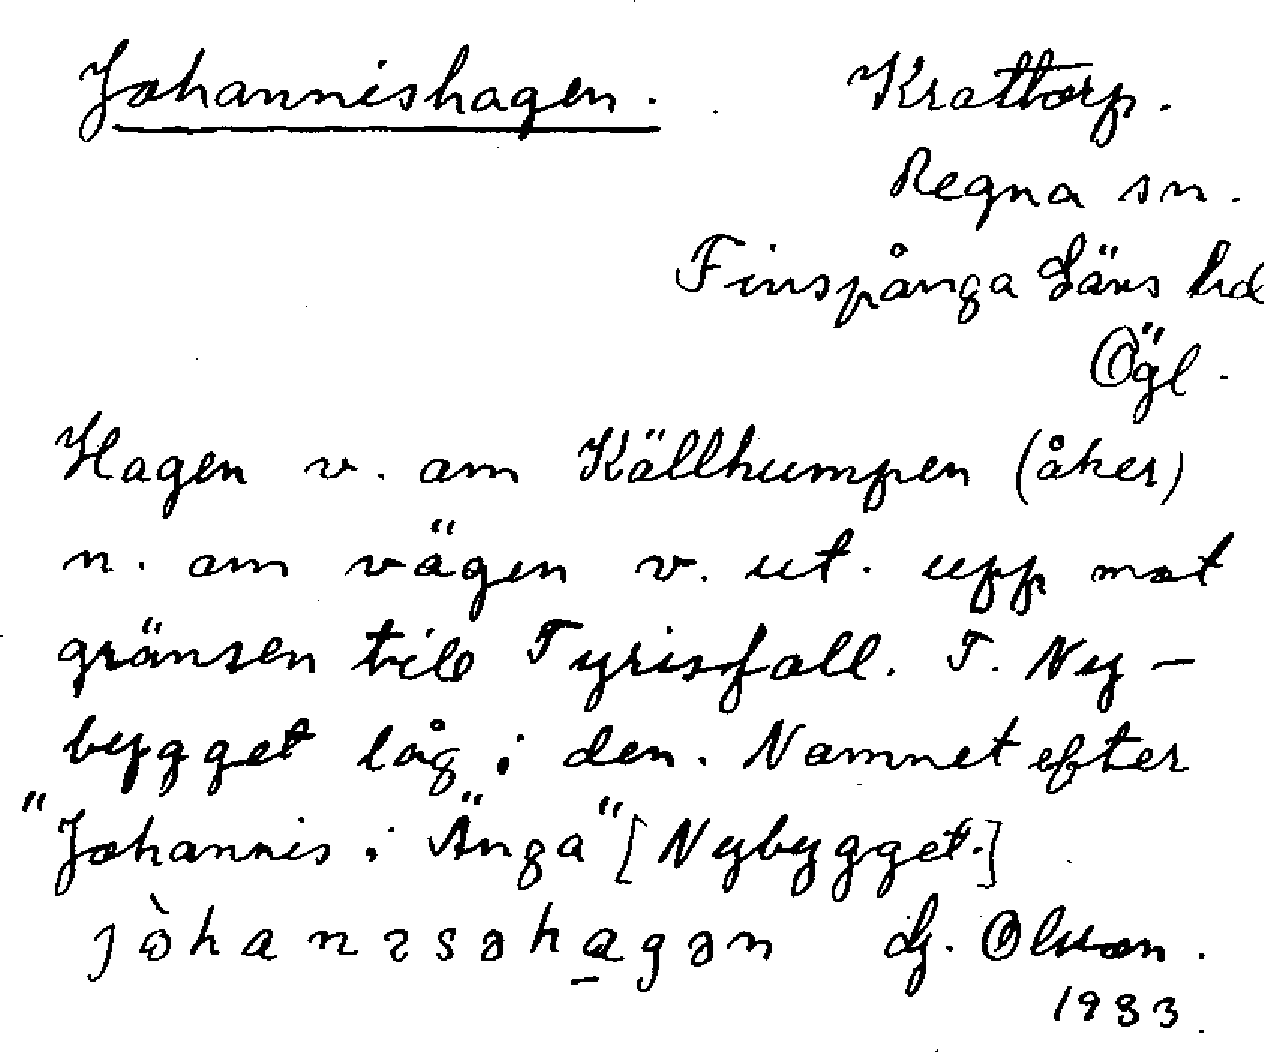 Johannishagen. Krattorp.
Regna sn.
Finspånga Läns hd
Ögl.
Hagen v. om Källhumpen (åker)
n. om vägen v. ut. upp mot
gränsen till Tyrisfall. T. Ny-
bygget låg i den. Namnet efter
"Johannis i Änga" [Nybygget.]
G. Olsson.
1933.